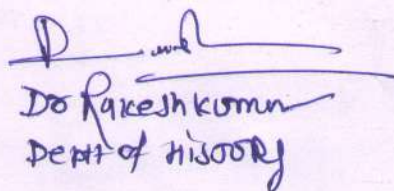 Dr Rakesh kumar
Deptt of History